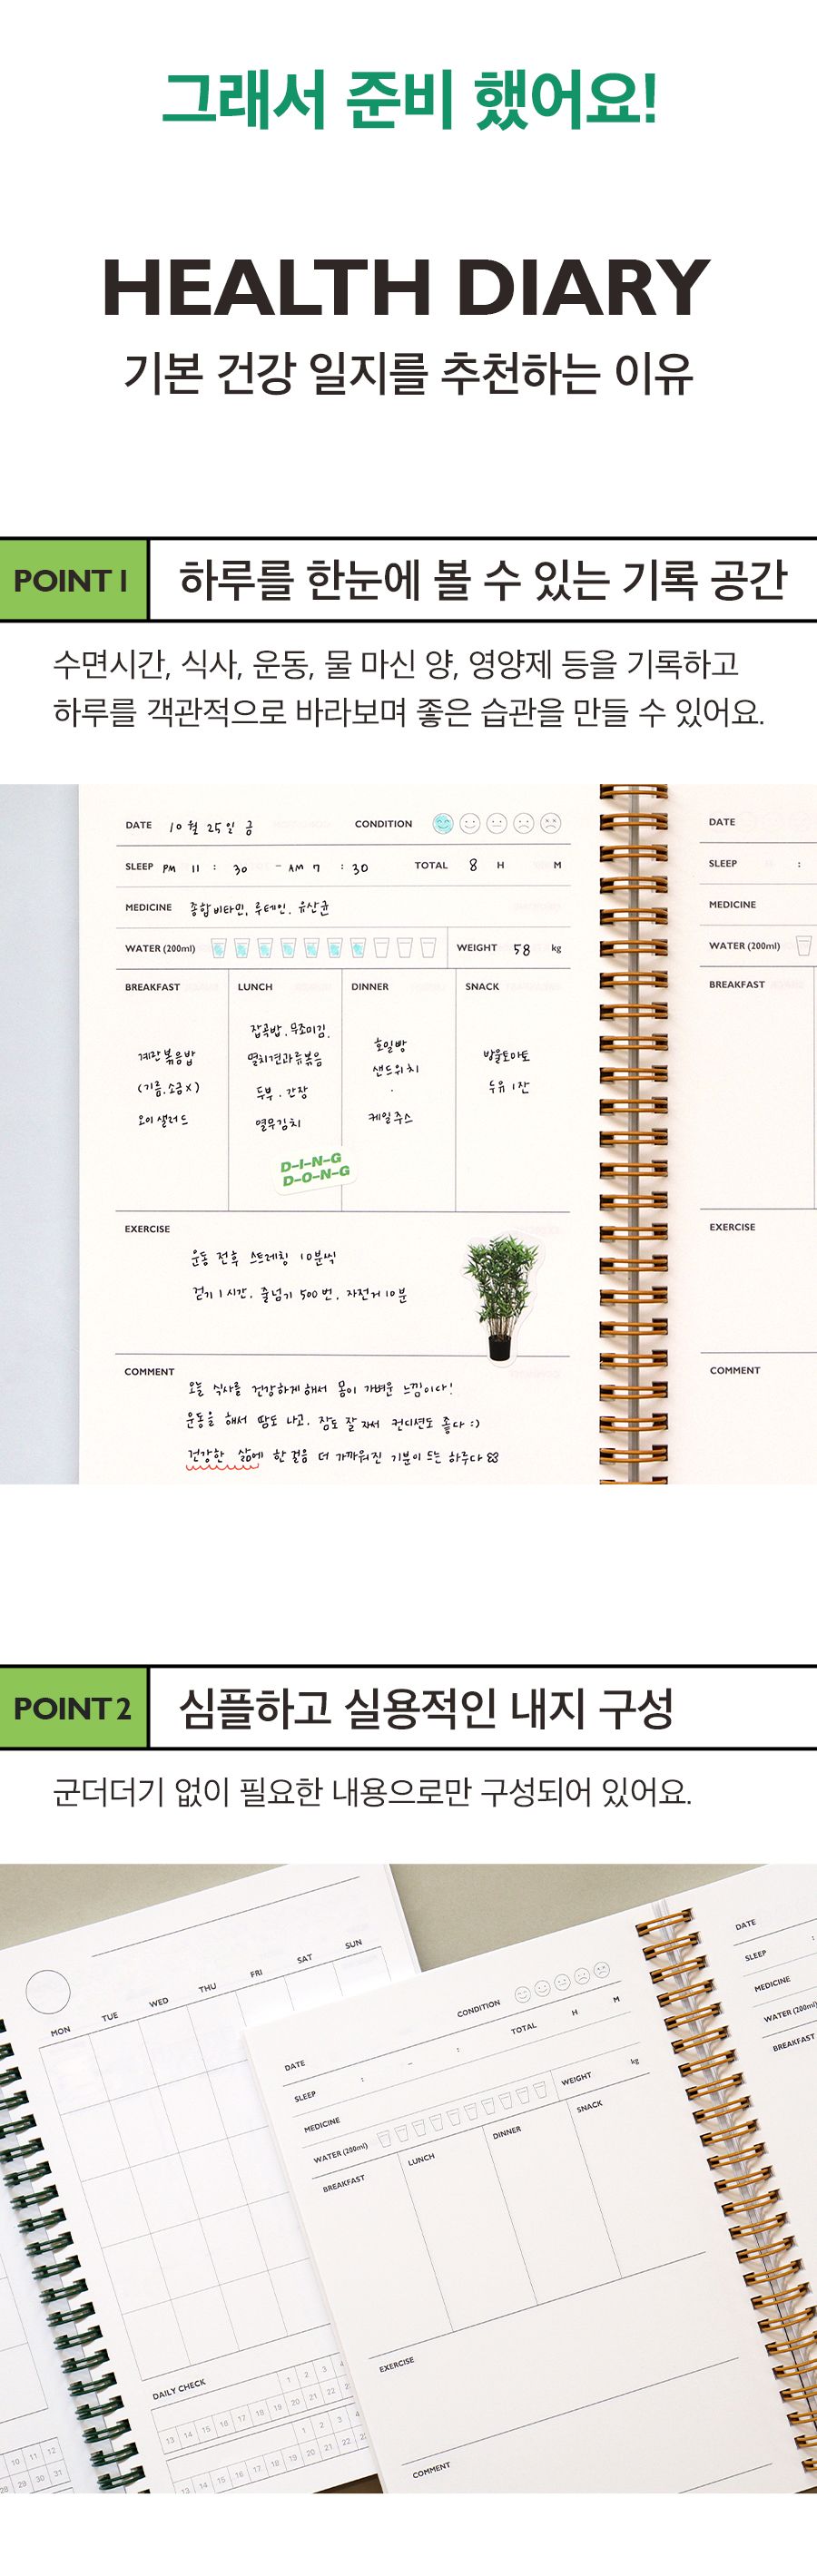 그래서 준비 했어요!
HEALTH DIARY
기본 건강 일지를 추천하는 이유
POINT 1 하루를 한눈에 볼 수 있는 기록 공간
수면시간, 식사, 운동, 물 마신 양, 영양제 등을 기록하고
하루를 객관적으로 바라보며 좋은 습관을 만들 수 있어요.
DATE 10월 25일 금 CONDITION
SLEEP PM 11 : 30 - AM 7 : 30 TOTAL 8 H M
MEDICINE 종합비타민, 루테인, 유산균
WATER (200ml) WEIGHT 58 kg
BREAKFAST LUNCH DINNER SNACK
계란볶음밥
(기름,소금X)
오이샐러드
잡곡밥, 무조미김,
멸치견과류볶음
두부, 간장
열무김치
호밀빵
샌드위치
.
케일주스
방울토마토
두유 1잔
D-I-N-G
D-O-N-G
EXERCISE
운동 전후 스트레칭 10분씩
걷기 1시간, 줄넘기 500번, 자전거 10분
COMMENT
오늘 식사를 건강하게 해서 몸이 가벼운 느낌이다!
운동을 해서 땀도 나고, 잠도 잘 자서 컨디션도 좋다 :)
건강한 삶에 한 걸음 더 가까워진 기분이 드는 하루다
DATE
SLEEP :
MEDICINE
WATER (200ml)
BREAKFAST
EXERCISE
COMMENT
POINT 2 심플하고 실용적인 내지 구성
군더더기 없이 필요한 내용으로만 구성되어 있어요.
MON TUE WED THU FRI SAT SUN
DAILY CHECK
1 2 3 4
13 14 15 16 17 18 19 20 21 22
1 2 3 4
13 14 15 16 17 18 19 20 21 22
10 11 12
28 29 30 31
DATE CONDITION
SLEEP : - : TOTAL H M
MEDICINE
WATER (200ml) WEIGHT kg
BREAKFAST LUNCH DINNER SNACK
EXERCISE
COMMENT
DATE
SLEEP :
MEDICINE
WATER (200ml)
BREAKFAST